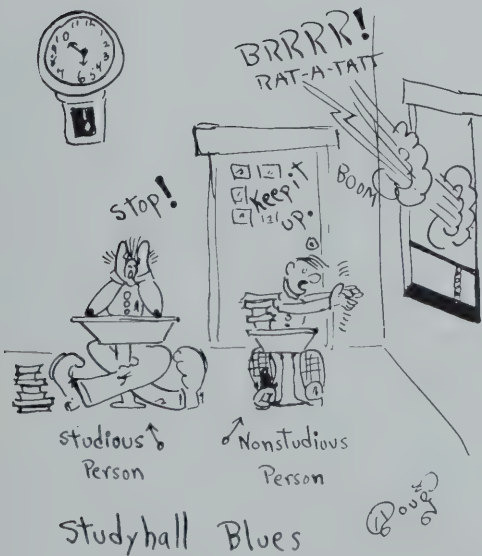 BRRRR!
RAT-A-TATT
BOOM
stop!
keep it
up.
Studious
Person
Nonstudious
Person
Studyhall Blues
Doug